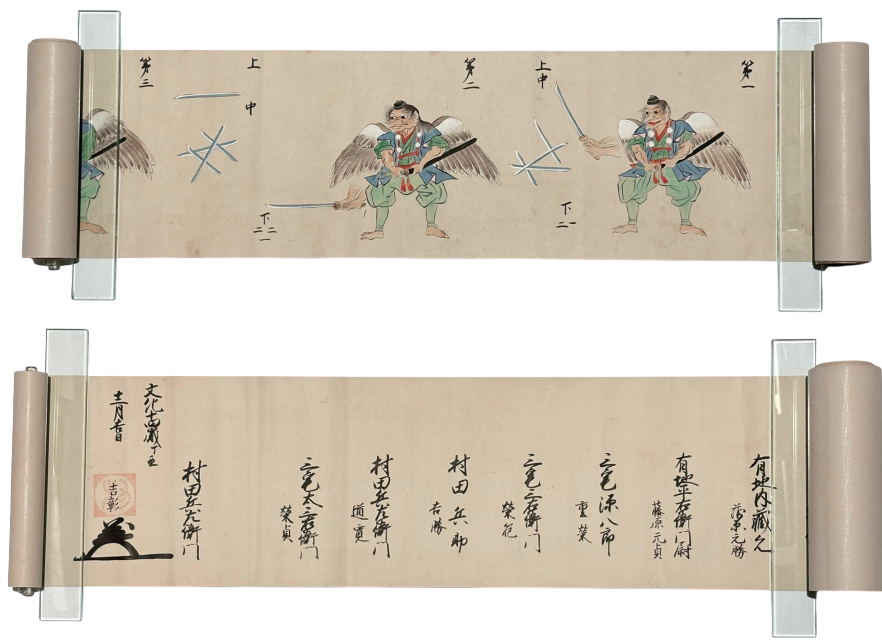 第一
上中
下
一
二
第二
上
中
下
二
一
二
第三
有地内蔵允
藤原元勝
有地平右衛門尉
藤原元貞
三宅源八郎
重榮
三宅三右衛門
榮範
村田兵助
吉勝
村田兵左衛門
道寛
三宅太三右衛門
榮貞
村田兵左衛門
吉彰
文化十四歳丁丑
十二月吉日